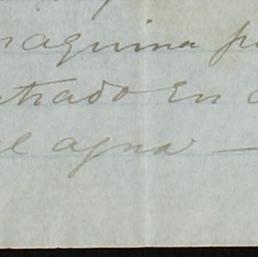 maquina p
ntrado en
el agua —